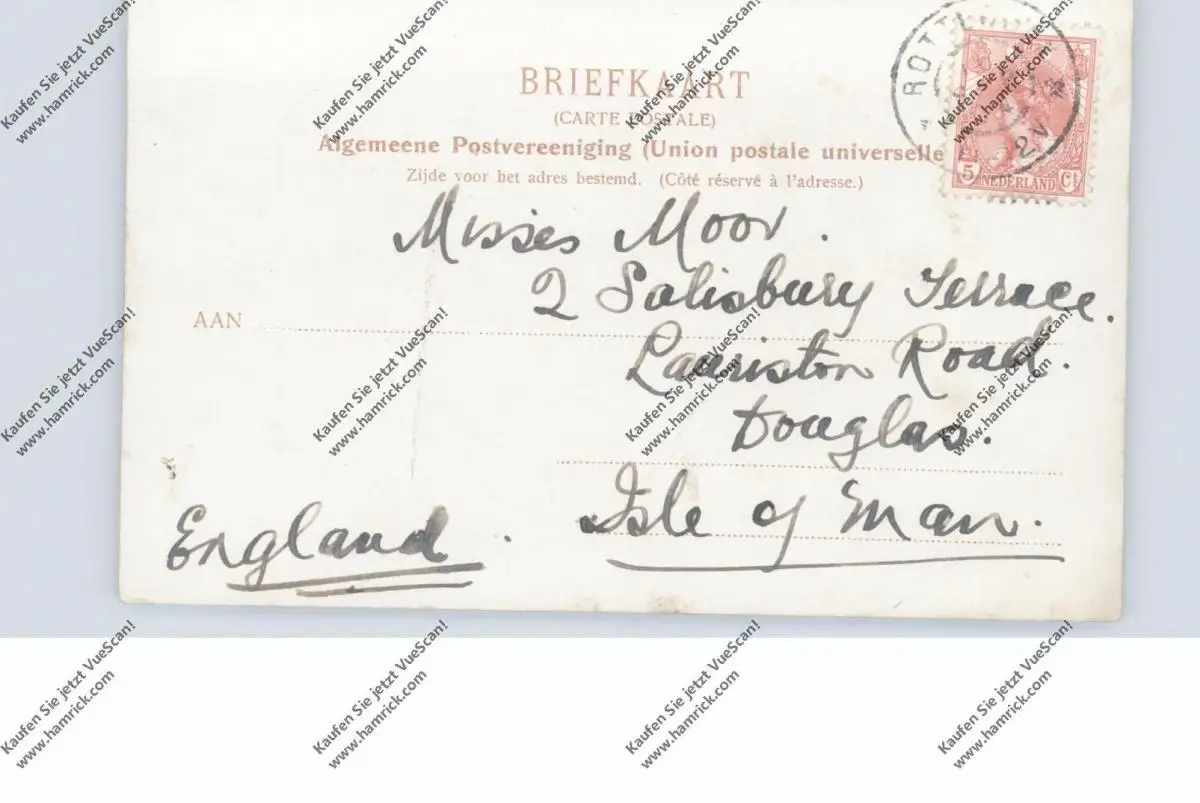 BRIEFKAART
(CARTE POSTALE)
Algemeene Postvereeniging (Union postale universelle
Zijde voor het adres bestemd. (Côté réservé à l'adresse.)
5 NEDERLAND Ct
2N
Misses Moor.
2 Salisbury Terrace.
AAN
Lauriston Road.
Douglas.
Isle of Man.
England.
Kaufen Sie jetzt VueScan!
www.hamrick.com
Kaufen Sie jetzt VueScan!
www.hamrick.com
Kaufen Sie jetzt VueScan!
www.hamrick.com
Kaufen Sie jetzt VueScan!
www.hamrick.com
Kaufen Sie jetzt VueScan!
www.hamrick.com
Kaufen Sie jetzt VueScan!
www.hamrick.com
Kaufen Sie jetzt VueScan!
www.hamrick.com
Kaufen Sie jetzt VueScan!
www.hamrick.com
Kaufen Sie jetzt VueScan!
www.hamrick.com
Kaufen Sie jetzt VueScan!
www.hamrick.com
Kaufen Sie jetzt VueScan!
www.hamrick.com
Kaufen Sie jetzt VueScan!
www.hamrick.com